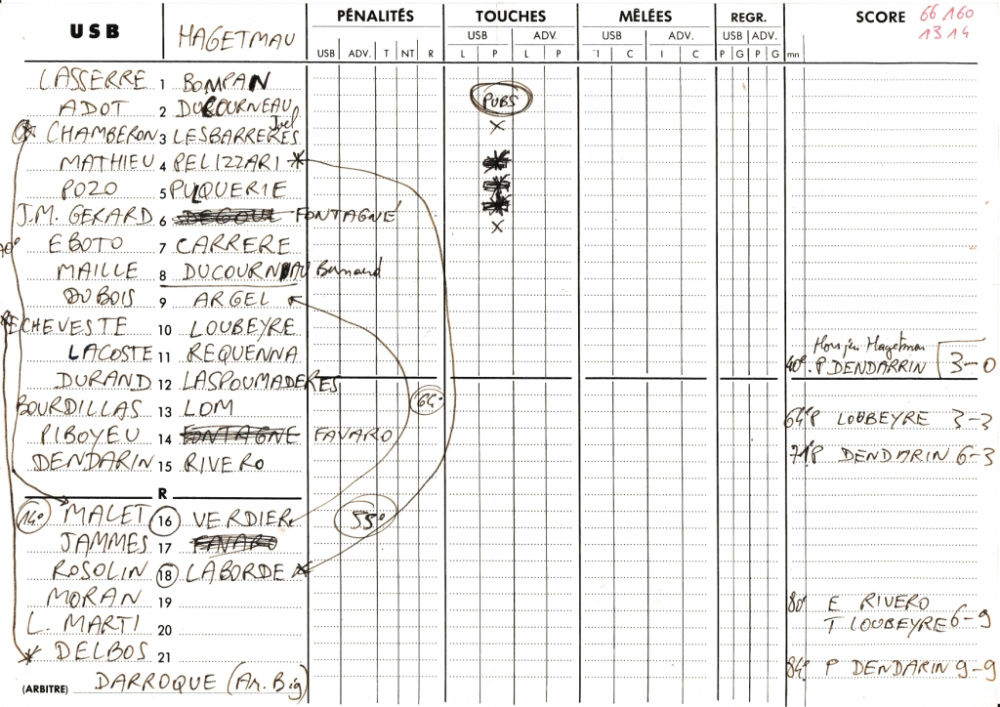 USB HAGETMAU PÉNALITÉS TOUCHES MÊLÉES REGR. SCORE 66 160
13 14
USB ADV. USB ADV. USB ADV.
USB ADV. T NT R L P L P I C I C P G P G mn
LASSERRE 1 BOMPAN
ADOT 2 DUCOURNEAU PUBS
CHAMBERON 3 LESBARRERES Joel ×
MATHIEU 4 PELIZZARI *
POZO 5 PUQUERIE
J.M. GERARD 6 FONTAGNÉ ×
EBOTO 7 CARRERE
MAILLE 8 DUCOURNEAU Bernard
DUBOIS 9 ARGEL
ECHEVESTE 10 LOUBEYRE
LACOSTE 11 REQUENNA Hors jeu Hagetmau
DURAND 12 LASPOUMADERES 40e P. DENDARRIN 3-0
BOURDILLAS 13 LOM 64e 64e P LOUBEYRE 3-3
PIBOYEU 14 FONTAGNE FAVARO
DENDARIN 15 RIVERO 71e P DENDARIN 6-3
R
14e MALET 16 VERDIER 55e
JAMMES 17 FAVARO
ROSOLIN 18 LABORDE
MORAN 19 80e E RIVERO
L. MARTI 20 T LOUBEYRE 6-9
DELBOS 21 84e P DENDARIN 9-9
(ARBITRE) DARROQUE (Ar. Big)